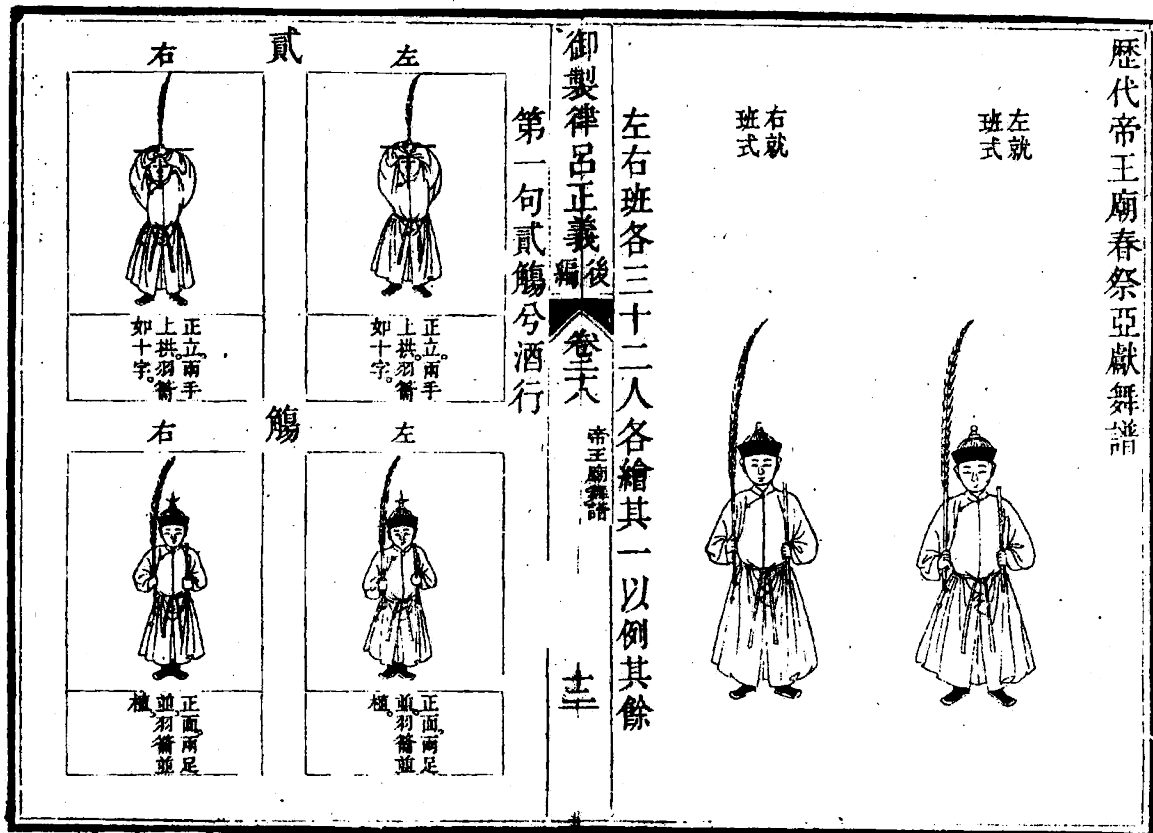 歷代帝王廟春祭亞獻舞譜
左就
班式
右就
班式
左右班各三十二人各繪其一以例其餘
御製律呂正義後編
卷三十八
帝王廟舞譜
十三
第一句貳觴兮酒行
貳
左
正立。兩手
上拱。羽籥
如十字。
右
正立。兩手
上拱。羽籥
如十字。
觴
左
正面。兩足
並。羽籥並
植。
右
正面。兩足
並。羽籥並
植。